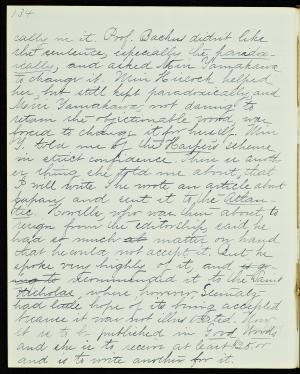 134
cally in it. Prof. Backus didn't like
that sentence, especially the paradox-
ically, and asked Miss Yamakawa
to change it. Miss Hiscock helped
her, but still kept paradoxically and
Miss Yamakawa, not daring to
retain the objectionable word, was
forced to change it for herself. Miss
Y. told me of the Harper's scheme
in strict confidence. There is anoth-
er thing she told me about, that
I will write. She wrote an article about
Japan, and sent it to the Atlan-
tic. Howells, who was then about to
resign from the editorship, said, he
had so much matter on hand
that he would not accept it. But he
spoke very highly of it, and
recommended it to the Saint
Nicholas, where, however, Stematz
had little hope of its being accepted
because it was not illustrated. Now
it is to be published in Good Words
and she is to receive at least
and is to write another for it.